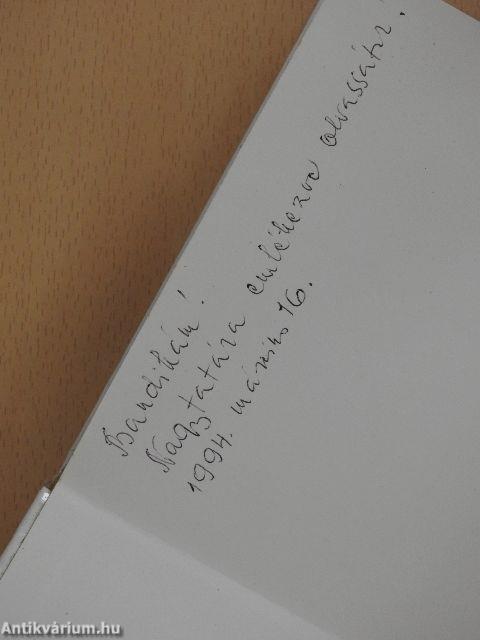 Bandikám!
Nagytatára emlékezve olvassátok!
1994. március 16.
Antikvárium.hu